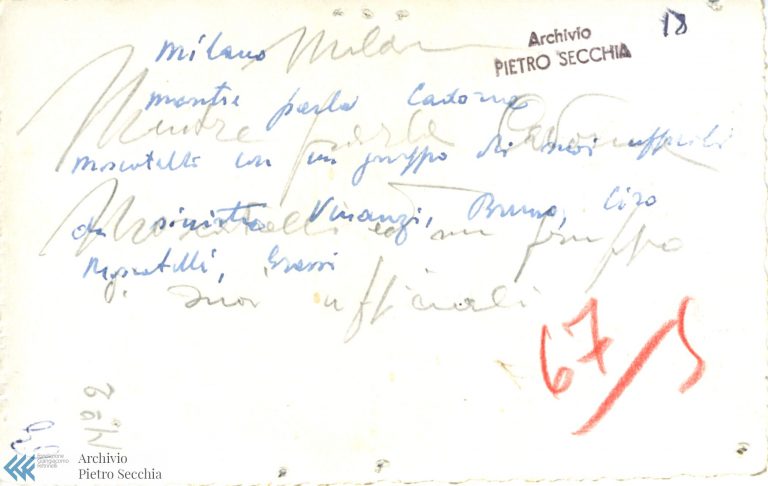 18
Archivio
PIETRO SECCHIA
Milano
Milano
mentre parla Cadorna
Mentre parla Cadorna
Moscatelli con un gruppo di suoi ufficiali
da sinistra Vinanzi, Bruno, Ciro
Moscatelli ed un gruppo
Moscatelli, Grassi
suoi ufficiali
67/5
Fondazione
Giangiacomo
Feltrinelli
Archivio
Pietro Secchia